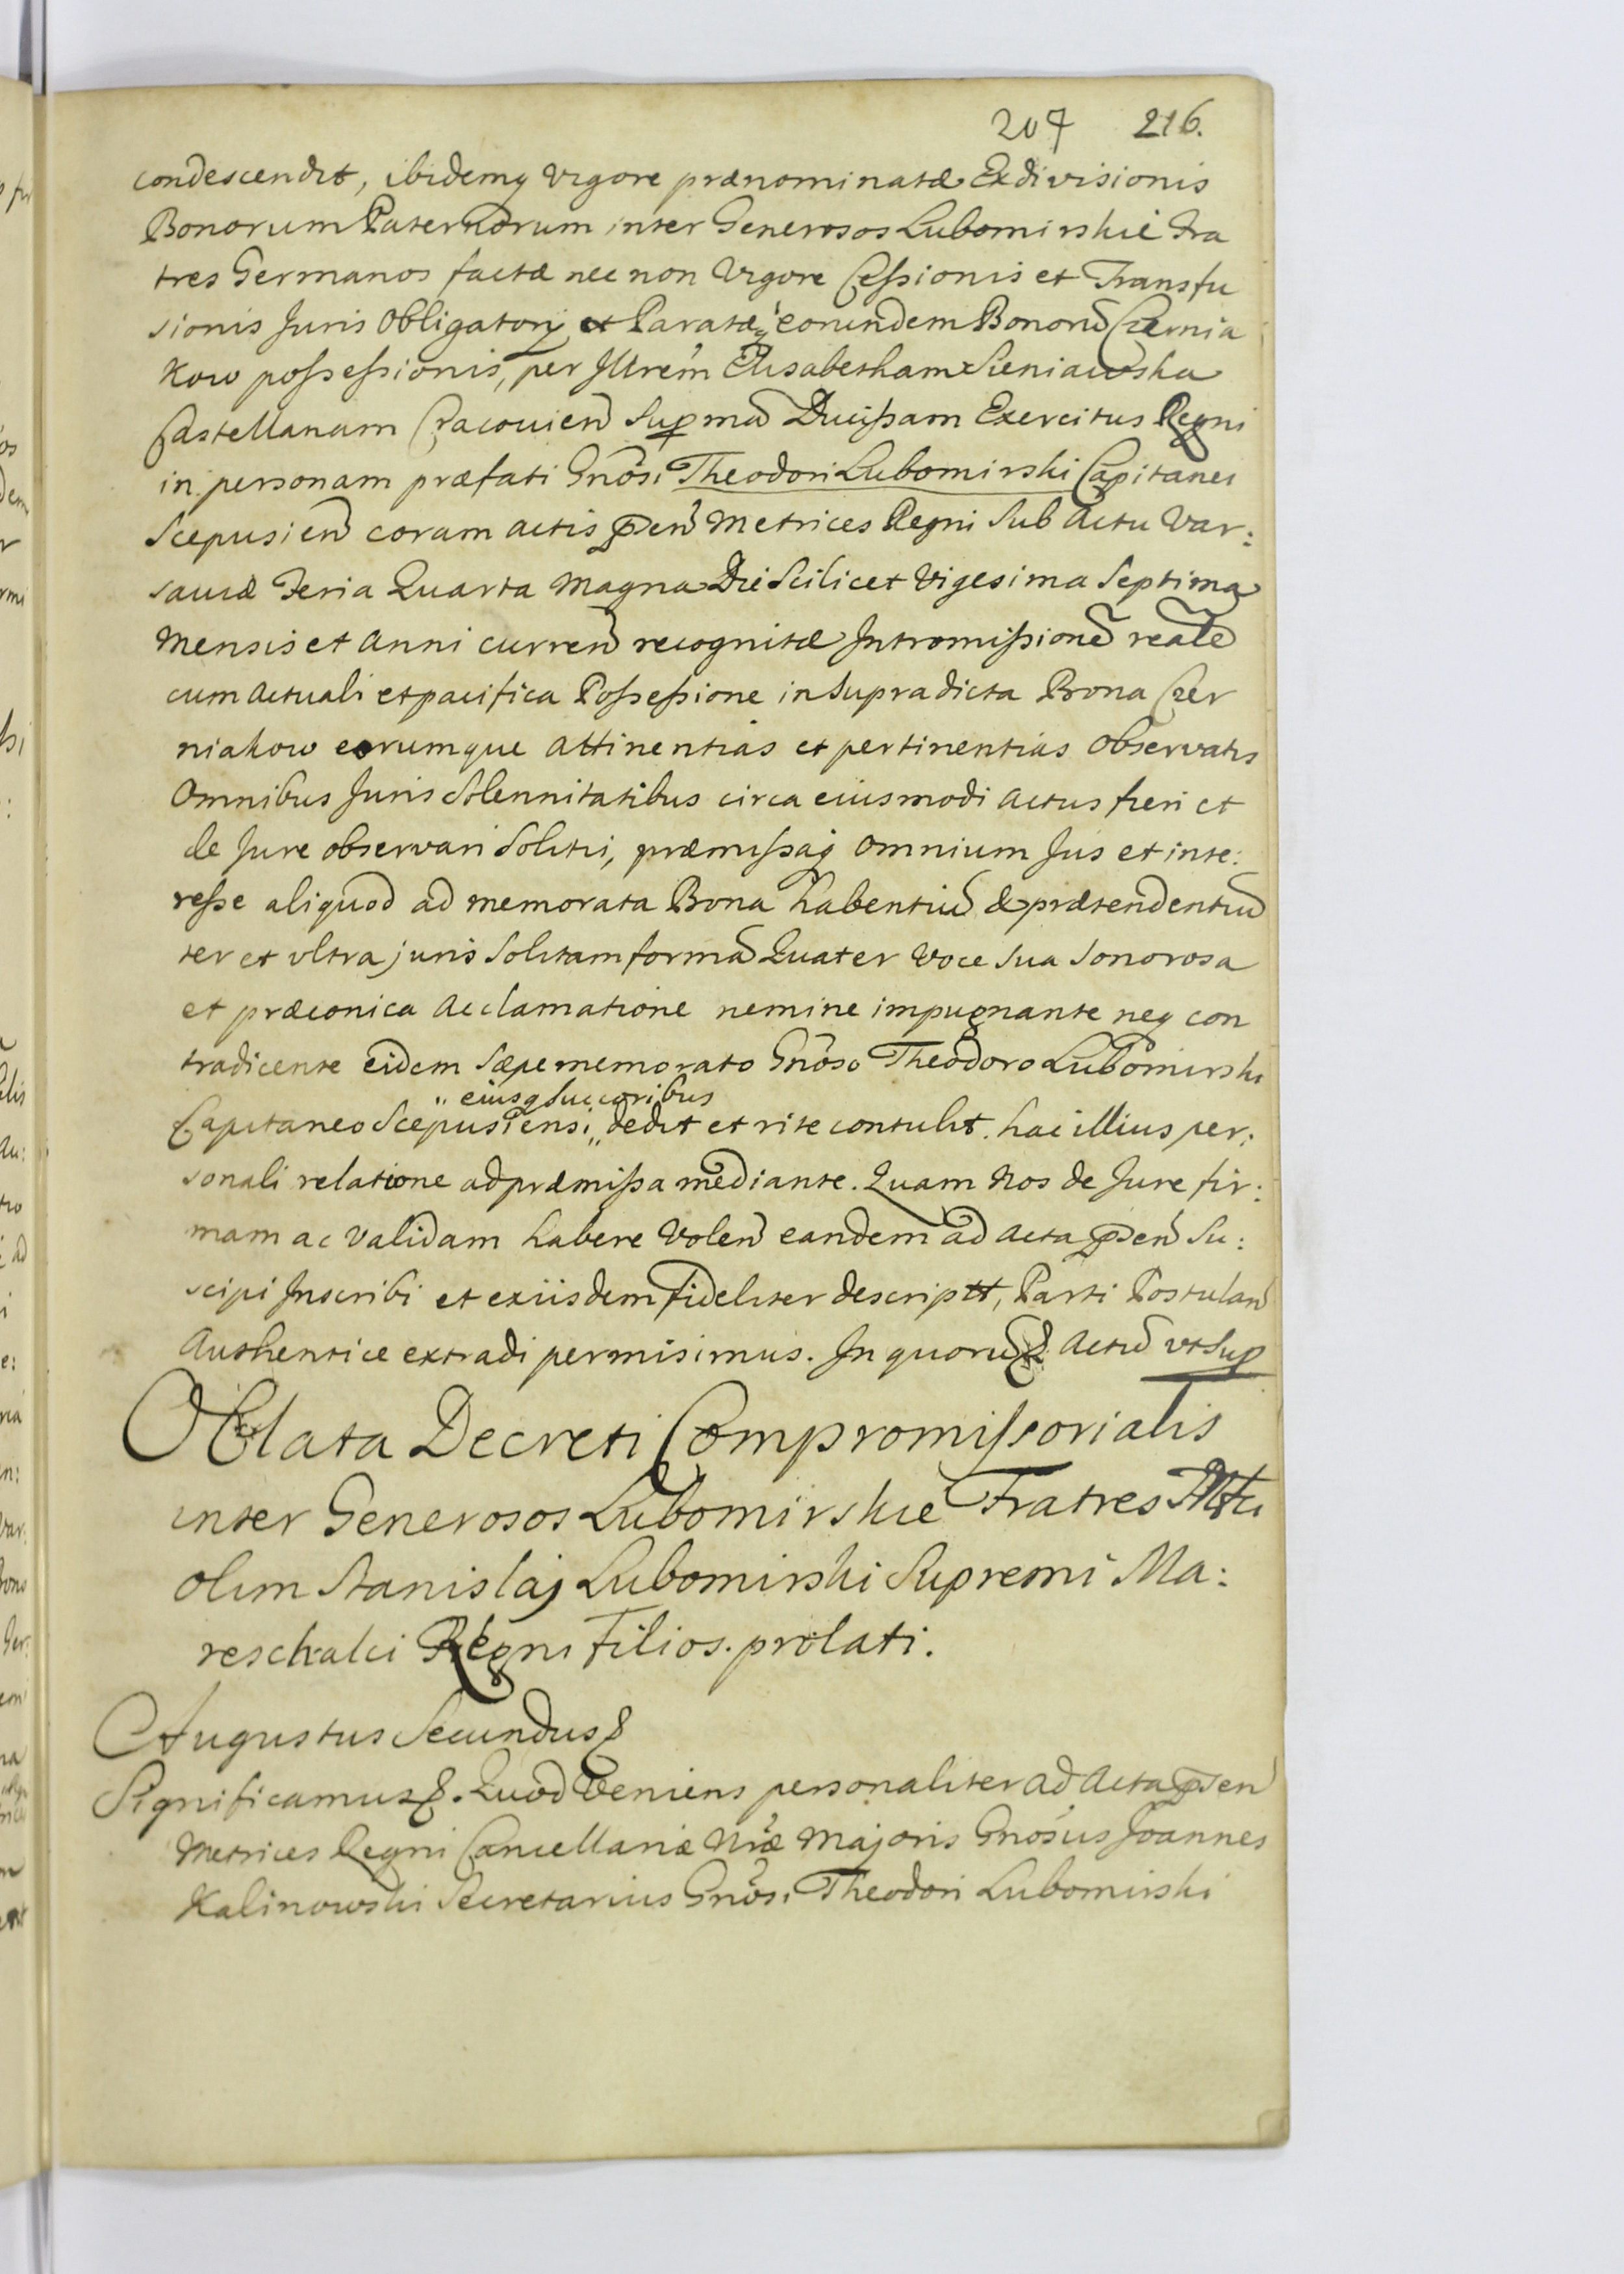 207 216.
condescendit, ibidemq vigore prænominatæ Exdivisionis
Bonorum Paternorum inter Generosos Lubomirskie Fra
tres Germanos factæ nec non Vigore Cessionis et Transfu
sionis Juris Obligatorij et Paratæq eorundem Bonorũ Czernia
kow possessionis, per Illrem Elisabetham Sieniawska
Castellanam Cracovien Supmã Ducissam Exercitus Regni
in personam præfati Gnosi Theodori Lubomirski Capitanei
Scepusien coram actis pñsen Metrices Regni Sub Actu Var:
saviæ Feria Quarta Magna Die Scilicet Vigesima Septima
Mensis et Anni curren recognitæ Intromissionẽ realẽ
cum Actuali et pacifica Possessione in Supradicta Bona Czer
niakow eorumque attinentias et pertinentias observatis
Omnibus Juris Solennitatibus circa eiusmodi Actus fieri et
de Jure observari Solitis, præmissaq Omnium Jus et inte:
resse aliquod ad memorata Bona habentiũ & prætendentiũ
ter et ultra juris Solitam formã Quater Voce Sua Sonorosa
et præconica Acclamatione nemine impugnante neq con
tradicente eidem Sæpememorato Gnoso Theodoro Lubomirski
„ eiusq Succoribus
Capitaneo Scepusiensi „ dedit et rite contulit. hac illius per:
sonali relatione ad præmissa mediante. Quam Nos de Jure fir:
mam ac validam habere Volen eandem ad Acta pñsen Su:
scipi Inscribi et exiisdem fideliter descriptt, Parti Postulan
Authentice extradi permisimus. In quorũ & Actũ vt Sup
Oblata Decreti Compromissorialis
inter Generosos Lubomirskie Fratres
olim Stanislaj Lubomirski Supremi Ma:
reschalci Regni Filios. prolati.
Augustus Secundus &
Significamus &. Quod Veniens personaliter ad Acta pñsen
Metrices Regni Cancellariæ Nræ Majoris Gnosus Joannes
Kalinowski Secretarius Gnosi Theodori Lubomirski